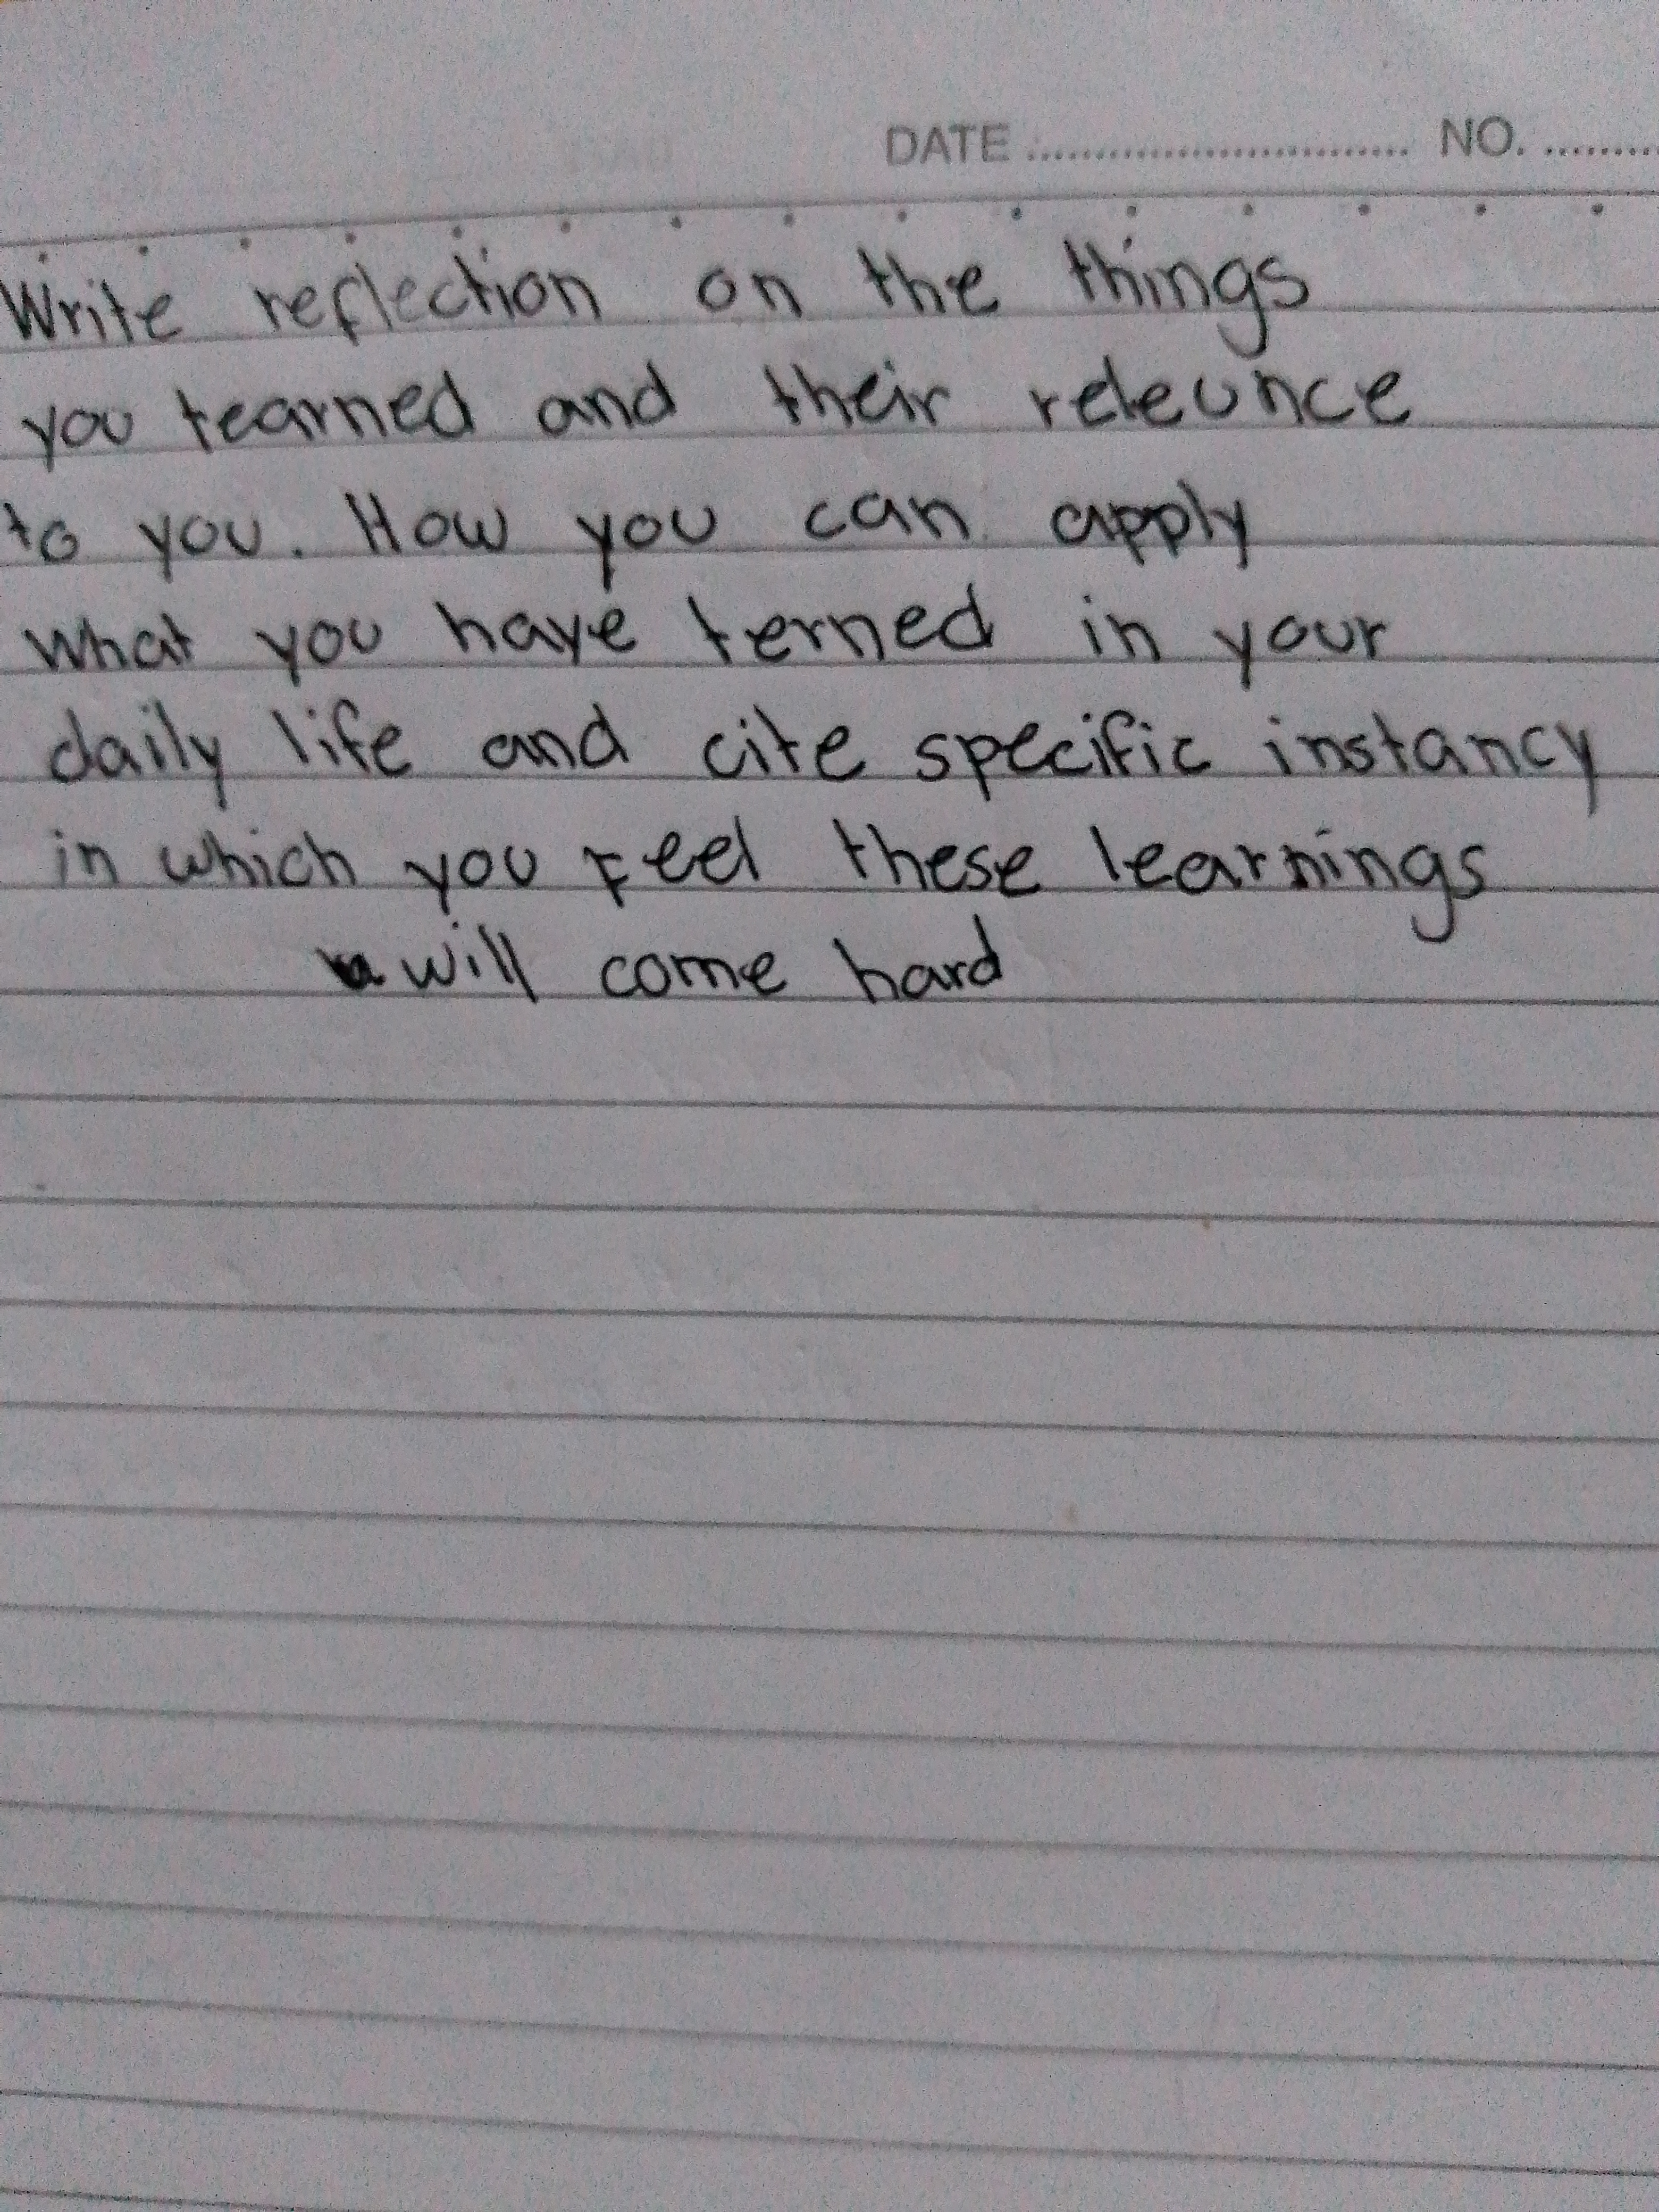 DATE ............................ NO. .........
Write reflection on the things
you tearned and their releunce
to you. How you can apply
what you have terned in your
daily life and cite specific instancy
in which you Feel these learnings
will come hard